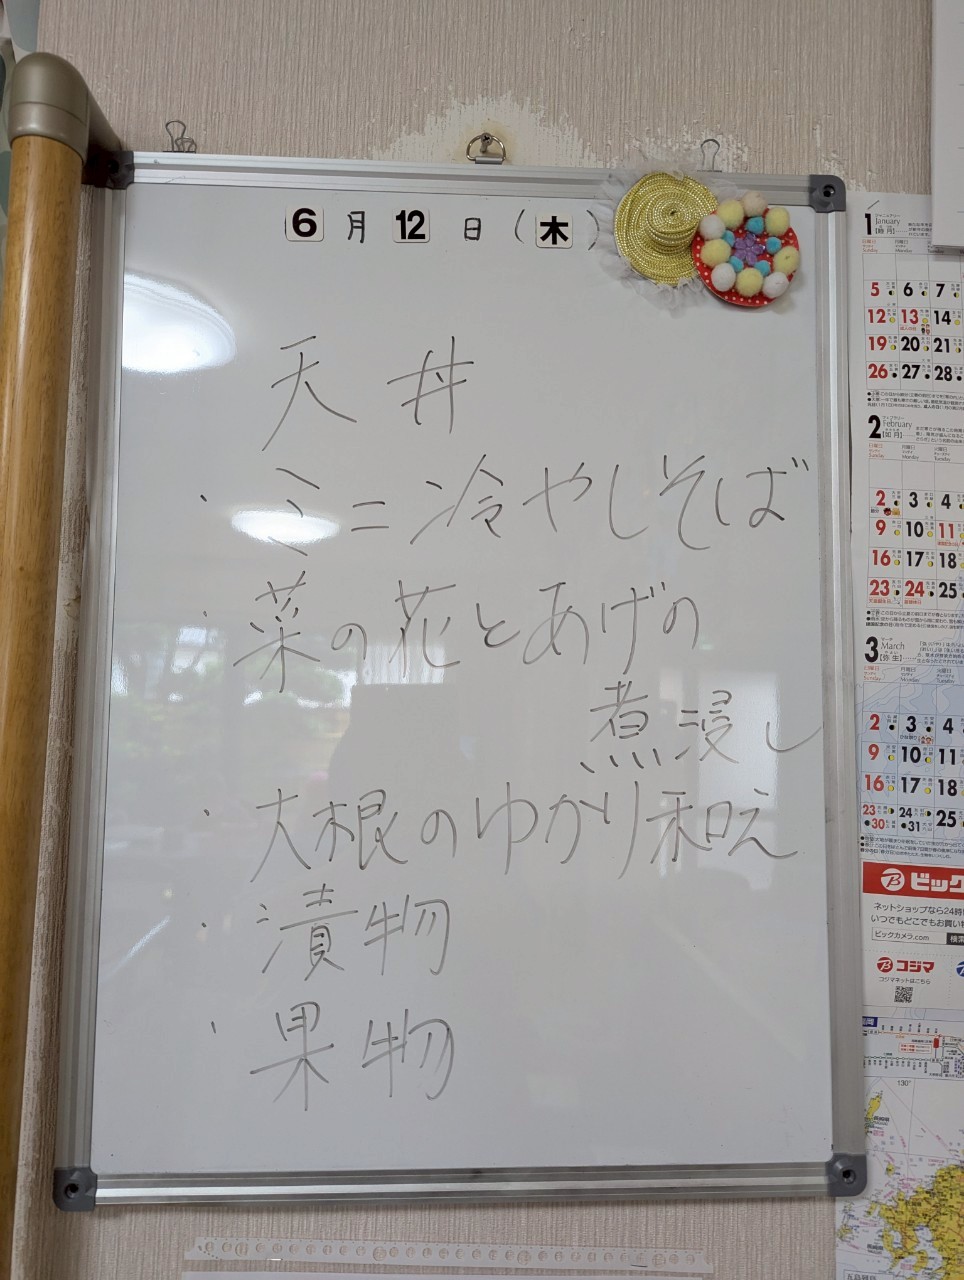 6月12日(木)
天丼
・ミニ冷やしそば
・菜の花とあげの
煮浸し
・大根のゆかり和え
・漬物
・果物
1
January
【睦月】
5 6 7
12 13 14
19 20 21
26 27 28
2
February
【如月】
2 3 4
9 10 11
16 17 18
23 24 25
3
March
【弥生】
2 3 4
9 10 11
16 17 18
23 24 25
30 31
ビック
ネットショップなら24時
いつでもどこでもお買い物
ビックカメラ.com 検索
コジマ
コジマネットはこちら
130°